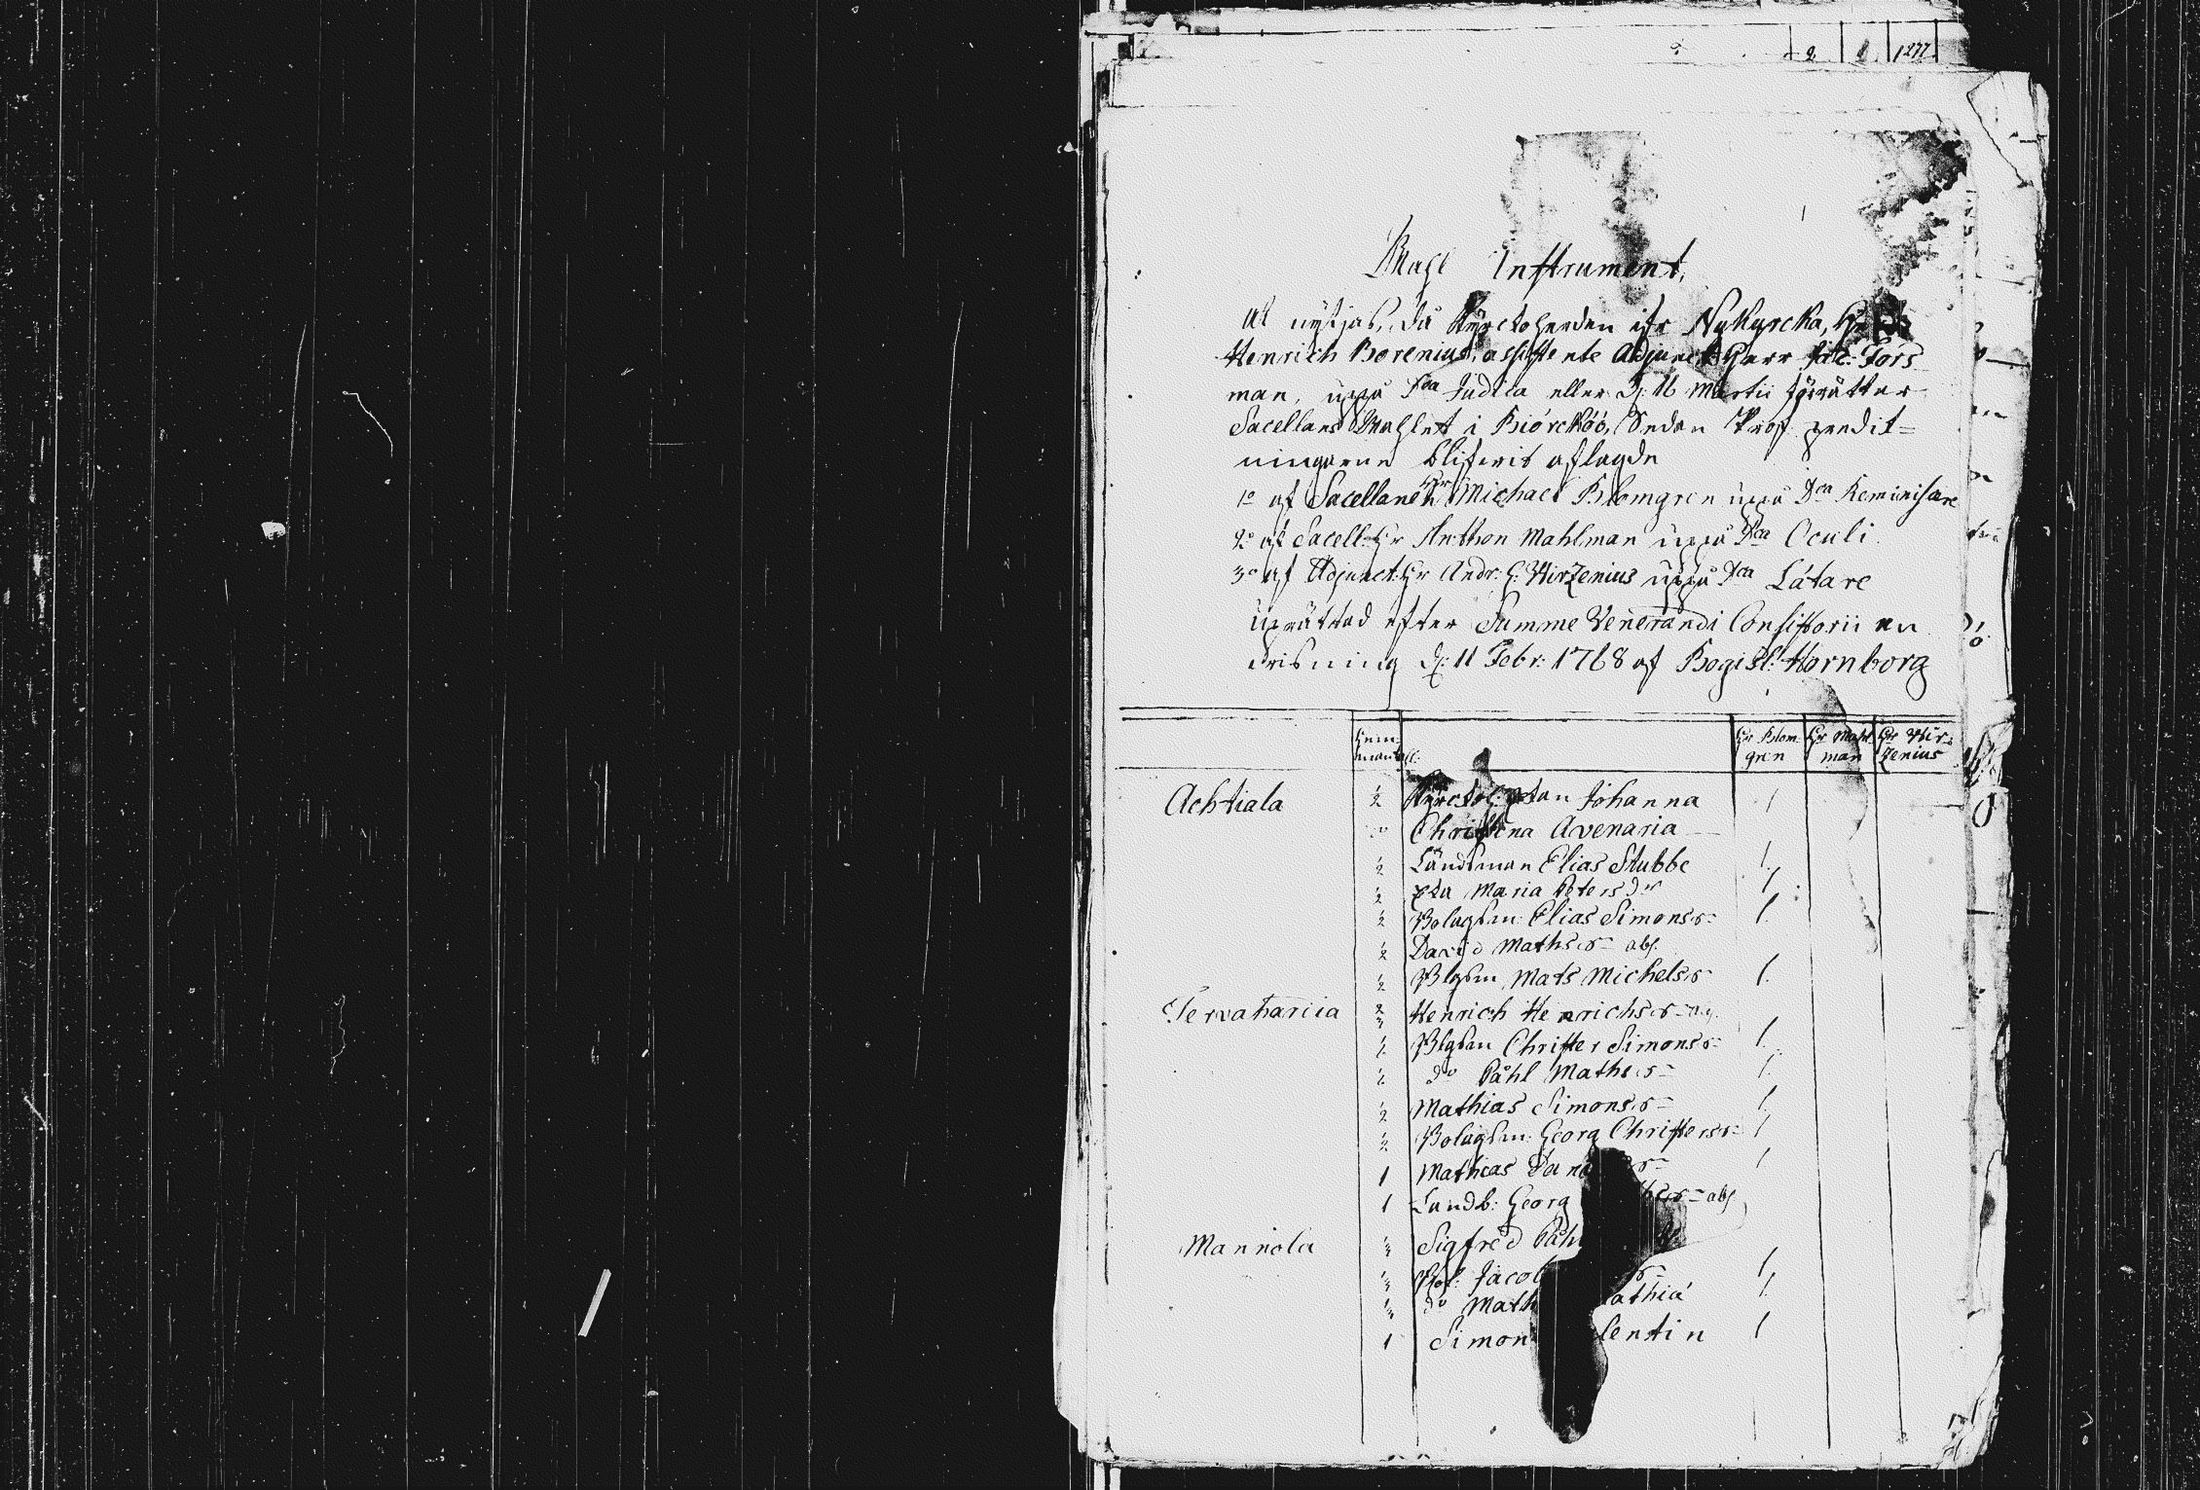 2 1277
Wahl Instrument,
at nyttjas, då Kyrckoherden ifr Nykyrcka, Her
Henrich Borenius, assistente Adjunct Herr Jac: Fors
man, uppå Dca Judica eller d: 16 Martii förrättar
Sacellans Wahlet i Biörcköö, Sedan Prof predik=
ningarne blifwit aflagde
1o af Sacellanen Hr Michael Blomgren uppå Dca Reminisare
2o af Sacell: Hr Anthon Mahlman uppå Dca Oculi
3o af Adjunct: Hr Andr: G: Hirzenius uppå Dca Lätare
uprättad efter Summe Venerandi Consistorii an
wisning d: 11 Febr: 1768 af Hornborg
Hem
mantall: Hr Blom
gren Hr Mahl
man Hr Hir=
zenius
Achtiala 1/2 Kyrckoh: Johanna 1
do Christina Avenaria
1/2 Ländsman Elias Stubbe 1.
1/2 Maria Petersdr 1.
1/2 Bolagsm: Elias Simonss: 1.
1/2 David Mathss abs.
1/2 Blgsm Mats Michelss 1.
Tervahariia 2/3 Henrich Henrichss
1/2 Blgsm Christer Simonss: 1.
1/2 do Påhl Mathss 1.
1/2 Mathias Simonss 1.
1/2 Bolagsm: Georg Christerss: 1
1 Mathias 1
1 Landb: Georg abs
Mannola 1/3 Sigfred Påhl
1/3 Bol: Jacob 1.
1/3 do Math athiæ 1.
1 Simon lentin 1